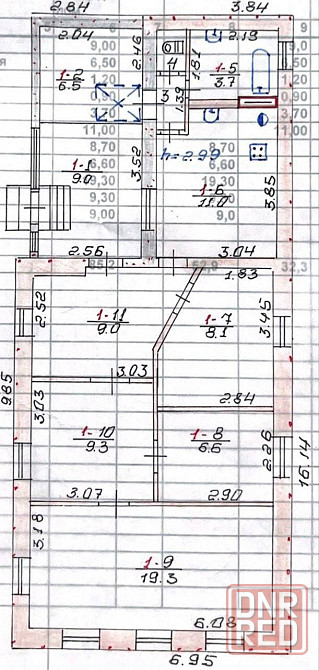 2.84
3.84
2.04
2.46
1.81
2.13
4
1-5
3.7
1-2
6.5
3
1.39
h=2.99
1-1
9.0
3.52
1-6
11.0
3.85
2.56
3.04
85,2
52,9
32,3
1.83
2.52
1-11
9.0
1-7
8.1
3.45
3.03
2.84
9.85
3.03
1-10
9.3
1-8
6.6
2.26
16.14
3.07
2.90
3.18
1-9
19.3
6.08
6.95
9,00
6,50
1,20
0,90
3,70
11,00
8,70
6,60
19,30
9,30
9,00
9,00
6,50
1,20
0,90
3,70
11,00
8,70
6,60
19,30
9,0
DNR
RED